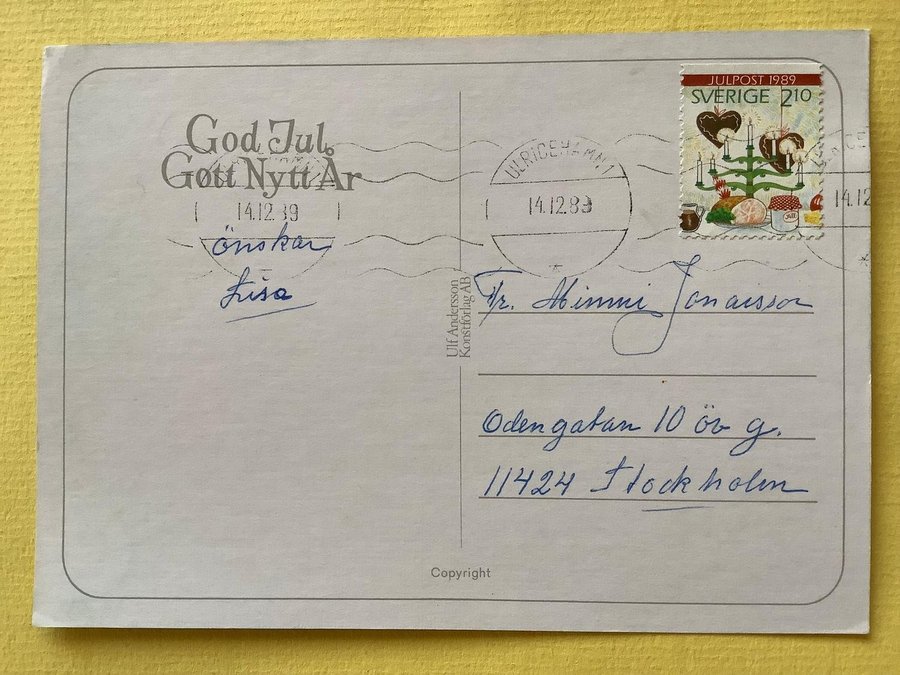 God Jul
Gott Nytt År
14.12.89
önskar
Lisa
ULRICEHAMN 1
14.12.89
JULPOST 1989
SVERIGE 2.10
ULRICE
14.12
Fr. Mimmi Jonaisson
Odengatan 10 öv g.
11424 Stockholm
Ulf Andersson
Konstförlag AB
Copyright